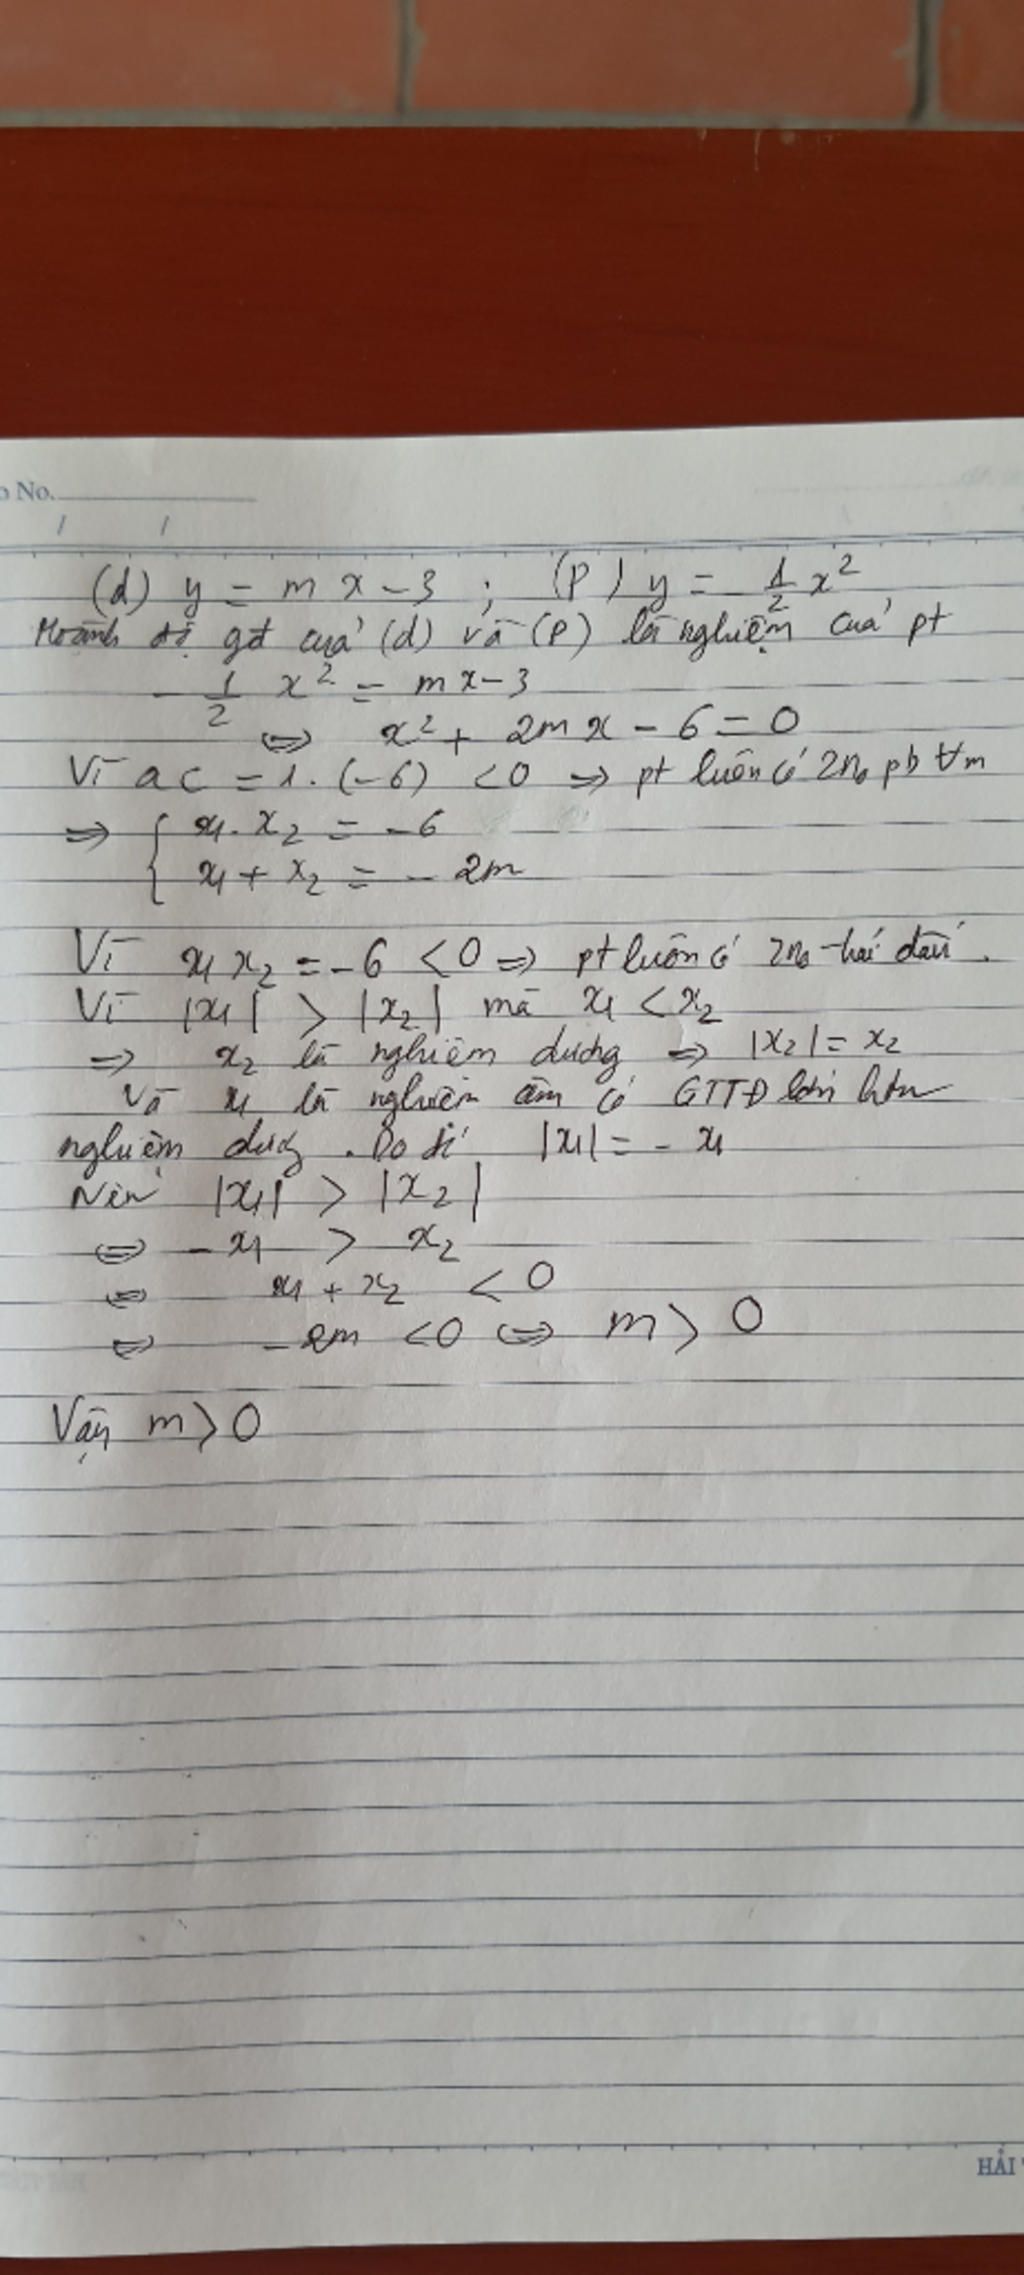 o No.
/ /
(d) y = mx - 3 ; (P) y = 1/2 x²
Hoành độ gđ của (d) và (P) là nghiệm của pt
- 1/2 x² = mx - 3
⇔ x² + 2mx - 6 = 0
Vì ac = 1. (-6) < 0 ⇒ pt luôn có 2n₀ pb ∀m
⇒ { x₁. x₂ = -6
x₁ + x₂ = - 2m
Vì x₁ x₂ = -6 < 0 ⇒ pt luôn có 2n₀ trái dấu.
Vì |x₁| > |x₂| mà x₁ < x₂
⇒ x₂ là nghiệm dương ⇒ |x₂| = x₂
Và x₁ là nghiệm âm có GTTĐ lớn hơn
nghiệm dương. Do đó |x₁| = - x₁
Nên |x₁| > |x₂|
⇔ -x₁ > x₂
⇔ x₁ + x₂ < 0
⇔ -2m < 0 ⇔ m > 0
Vậy m > 0
HẢI